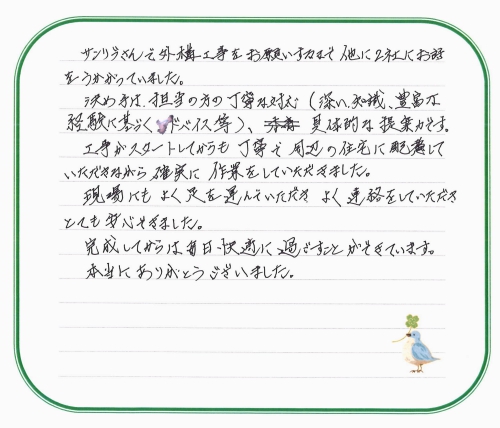 サンリョウさんで外構工事をお願いするまで他に2社にお話
をうかがっていました。
決め手は、担当の方の丁寧な対応(深い知識、豊富な
経験に基づくアドバイス等)、具体的な提案力です。
工事がスタートしてからも丁寧で周辺の住宅に配慮して
いただきながら確実に作業をしていただきました。
現場にもよく足を運んでいただき よく連絡をしていただき
とても安心できました。
完成してからは毎日、快適に過ごすことができています。
本当にありがとうございました。